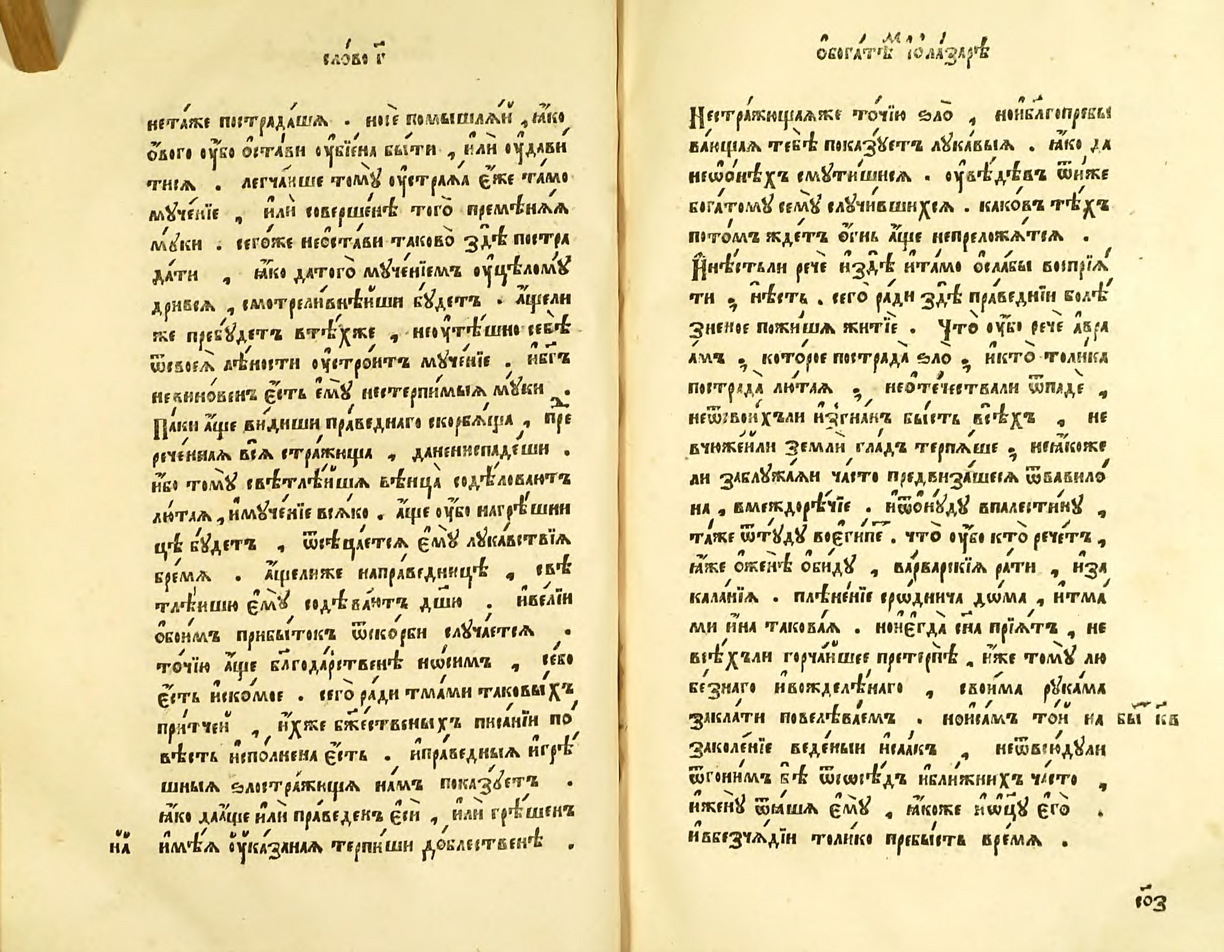 сло́во г҃
нета́же пострада́ша . но́се помышлѧ́й , ꙗ҆́ко
о҆́вого оу҆́бо ѡ҆ста́ви оу҆бїе́на бы́ти , и҆лѝ оу҆дави́
тисѧ . легча́йше томꙋ̀ оу҆страѧ́ѧ є҆́же та́мо
мꙋче́нїе , и҆лѝ соверше́нѣ того̀ премѣнѧ́ѧ
мꙋ́ки . сего́же неѡ҆ста́ви таково̀ здѣ̀ постра
да́ти , ꙗ҆́ко датого̀ мꙋче́нїемъ оу҆цѣломꙋ́
дривсѧ , смотрели́внѣйши бꙋ́детъ . а҆́щели
же пребꙋ́детъ втѣ́хже , неоу҆тѣ́шно себѣ̀
ѿсвоеѧ̀ лѣ́ности оу҆стро́итъ мꙋче́нїе . и҆бг҃ъ
непови́ненъ є҆́сть є҆мꙋ̀ нестерпи́мыѧ мꙋ́ки .
Па́ки а҆́ще ви́диши пра́веднаго скорбѧ́ща , пре
рече́ннаѧ всѧ̀ стра́жꙋща , данениспаде́ши .
и҆́бо томꙋ̀ свѣтлѣ́йшаѧ вѣнца̀ содѣ́ловаютъ
лю́таѧ , и҆мꙋче́нїе всѧ́ко . а҆́ще оу҆́бо нагрѣ́шни
цѣ бꙋ́детъ , ѿсѣца́етсѧ є҆мꙋ̀ лꙋка́вствїѧ
бре́мѧ . а҆́щелиже напра́ведницѣ , свѣ
тлѣ́йшꙋю є҆мꙋ̀ содѣва́ютъ дш҃ꙋ . и҆ве́лїй
ѻ҆бои́мъ прибы́токъ ѿско́рби слꙋча́етсѧ .
то́чїю а҆́ще благода́рственѣ но́симъ , се́бо
є҆́сть и҆ско́мое . сего̀ ра́ди тма́ми таковы́хъ
при́тчей , и҆́хже бж҃е́ственыхъ писа́нїй по́
вѣсть и҆спо́лнена є҆́сть . и҆пра́ведныѧ и҆грѣ́
шныѧ ѕлостра́жꙋщаѧ на́мъ пока́зꙋетъ .
ꙗ҆́ко даа҆́ще и҆лѝ пра́веденъ є҆сѝ , и҆лѝ грѣ́шенъ
на̀ и҆мѣ́ѧ оу҆каза́наѧ терпи́ши до́блественѣ .
ѡ҆бога́тѣ и҆ѡла́зарѣ
Нестра́жꙋщаѧже то́чїю ѕло̀ , нои҆благопребы
ва́ющаѧ тебѣ̀ пока́зꙋетъ лꙋка́выѧ . ꙗ҆́ко да
неѡ҆ни́хъ смꙋти́шисѧ . оу҆вѣ́дѣвъ ѿи҆́же
бога́томꙋ семꙋ̀ слꙋчи́вшихсѧ . како́въ тѣ́хъ
пото́мъ жде́тъ ѻ҆́гнь а҆́ще непрело́жатсѧ .
И҆нѣ́стьли речѐ и҆здѣ̀ и҆та́мо ѻ҆сла́бы воспрїѧ́
ти , нѣ́сть . сего̀ ра́ди здѣ̀ пра́веднїи болѣ́
зненое пожи́ша житїѐ . Что̀ оу҆́бо речѐ а҆вра
а́мъ , кото́рое пострада̀ ѕло̀ , и҆кто̀ толи́ка
пострада̀ лю́таѧ , неѻ҆те́чествали ѿпадѐ ,
неѿсвои́хъли и҆згна́нъ бы́сть всѣ́хъ , не
вчюже́йли землѝ гла́дъ терпѧ́ше , неꙗ҆́коже
ли заблꙋжа́ѧй ча́сто предви́зашесѧ ѿвавило́
на , вмеждорѣ́чїе . и҆ѿѻ҆нꙋ́дꙋ впалести́нꙋ ,
та́же ѿтꙋ́дꙋ воє҆ги́пе . что̀ оу҆́бо кто̀ рече́тъ ,
ꙗ҆́же ѡ҆женѣ̀ ѻ҆би́дꙋ , ва́рварскїѧ ра́ти , и҆за
кала́нїѧ . плѣне́нїе сро́днича до́ма , и҆тма́
ми и҆́на такова́ѧ . ноє҆гда̀ сн҃а прїѧ́тъ , не
всѣ́хъли горча́йшее претерпѣ̀ , и҆́же томꙋ̀ лю
бе́знаго и҆вожделѣ́наго , свои́ма рꙋка́ма
закла́ти повелѣва́емъ . нои҆са́мъ то́й на бы́ кв
заколе́нїе веде́ный и҆саа́къ , неѿвсю́дꙋли
ѿгони́мъ бѣ̀ ѿсосѣ́дъ и҆бли́жнихъ ча́сто ,
и҆женꙋ̀ ѿꙗ́ша є҆мꙋ̀ , ꙗ҆́коже и҆ѻ҆ц҃ꙋ̀ є҆гѡ̀ .
и҆вбезча́дїи то́лико пребы́сть вре́мѧ .